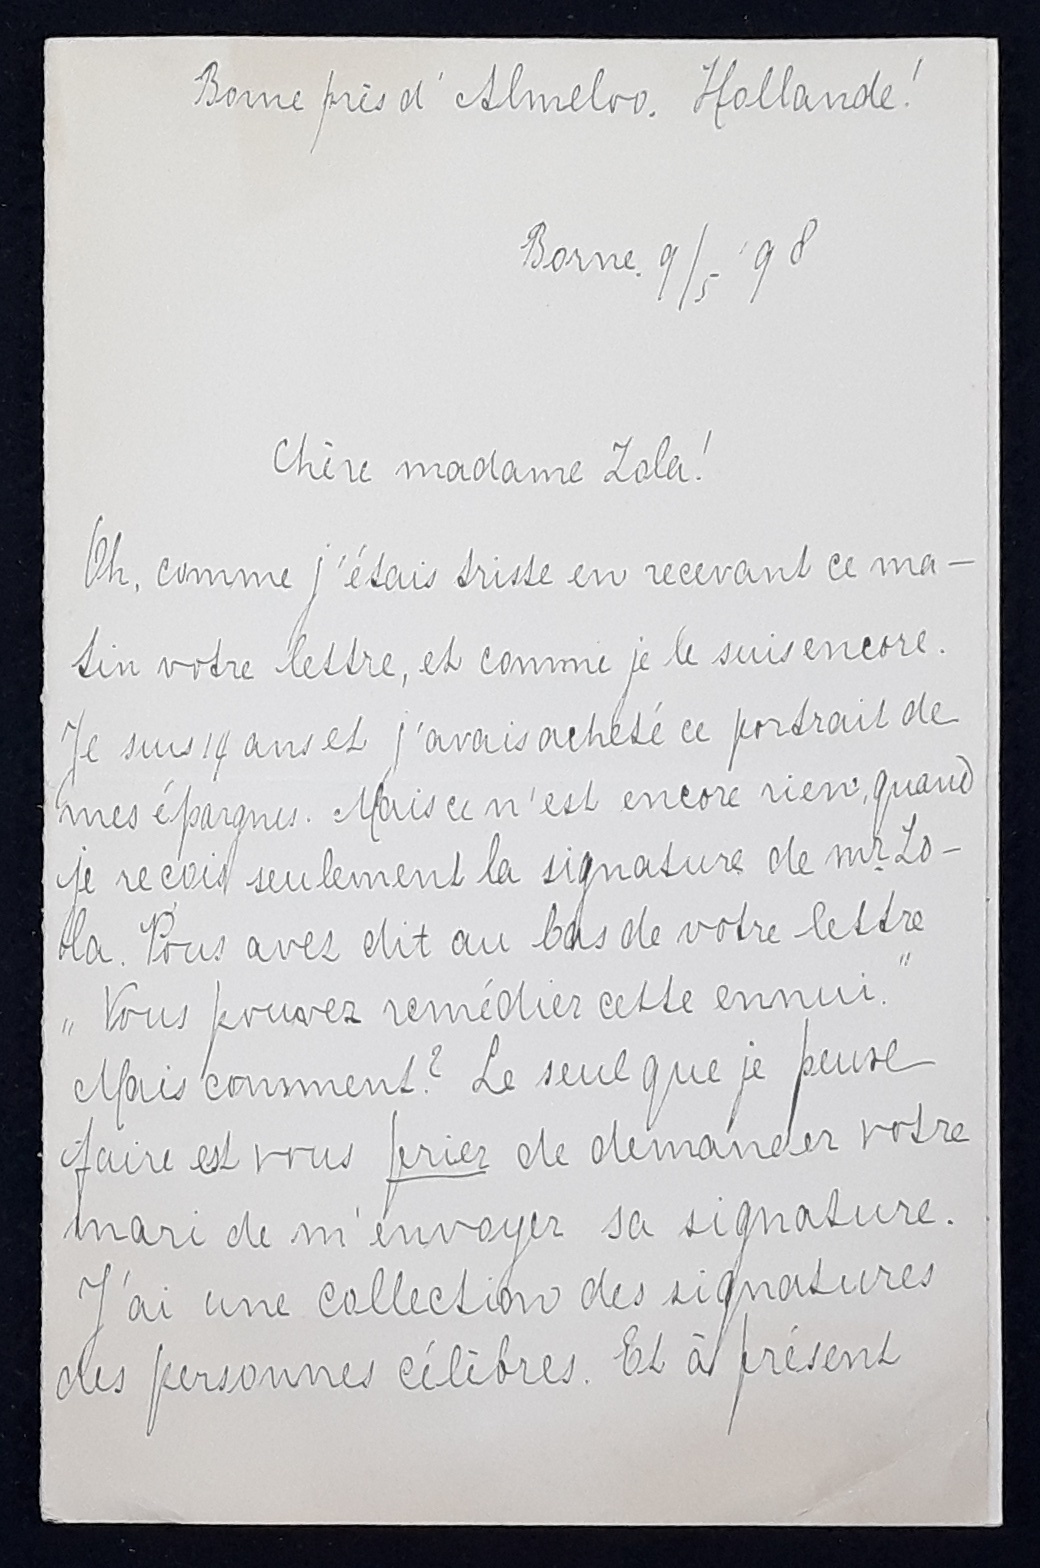 Borne près d'Almeloo. Hollande!
Borne. 9/5 '98
Chère madame Zola!
Oh, comme j'étais triste en recevant ce ma-
tin votre lettre, et comme je le suis encore.
Je suis 14 ans et j'avais acheté ce portrait de
mes épargnes. Mais ce n'est encore rien, quand
je reçois seulement la signature de mr. Zo-
la. Vous avez dit au bas de votre lettre
„Vous pouvez remédier cette ennui."
Mais comment? Le seul que je peuve
faire est vous prier de demander votre
mari de m'envoyer sa signature.
J'ai une collection des signatures
des personnes célèbres. Et à présent